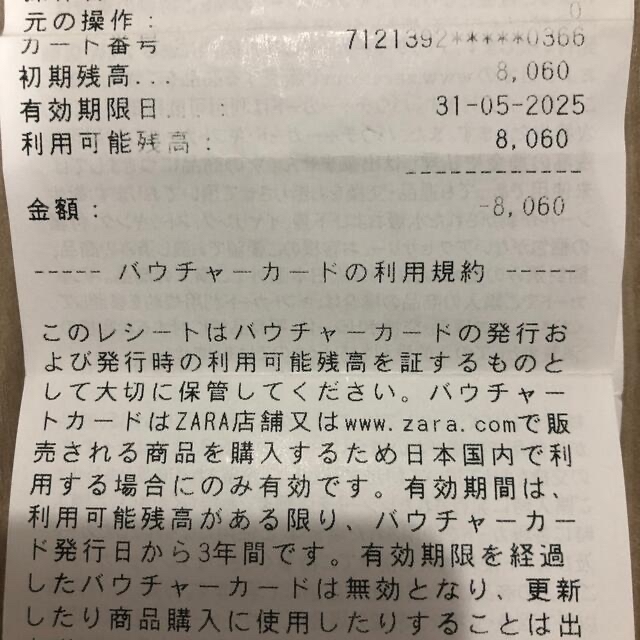 元の操作:
0
カード番号 7121392*****0366
初期残高.... 8,060
有効期限日...... 31-05-2025
利用可能残高: 8,060
----------
金額: -8,060
----- バウチャーカードの利用規約 ------
このレシートはバウチャーカードの発行お
よび発行時の利用可能残高を証するものと
して大切に保管してください。バウチャー
トカードはZARA店舗又はwww.zara.comで販
売される商品を購入するため日本国内で利
用する場合にのみ有効です。有効期間は、
利用可能残高がある限り、バウチャーカー
ド発行日から3年間です。有効期限を経過
したバウチャーカードは無効となり、更新
したり商品購入に使用したりすることは出